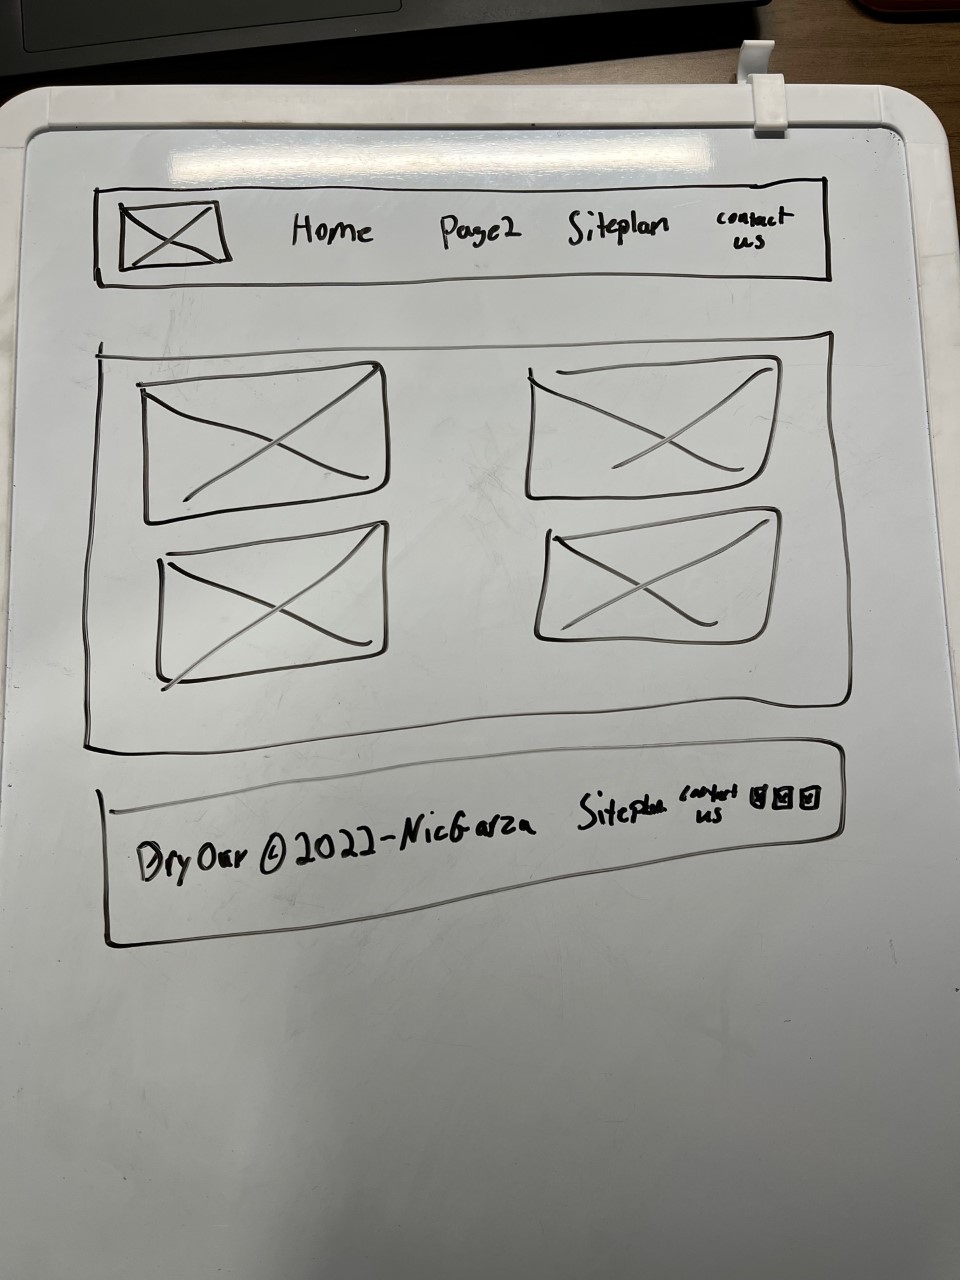 Home Page2 Siteplan contact
us
Dry Oar © 2022-NicGarza Siteplan contact
us